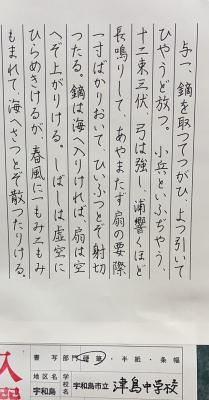 与一、鏑を取つてつがひ、よつ引いて
ひやうど放つ。小兵といふぢやう、
十二束三伏、弓は強し、浦響くほど
長鳴りして、あやまたず扇の要際
一寸ばかりおいて、ひいふつとぞ射切
つたる。鏑は海へ入りければ、扇は空
へぞ上がりける。しばしは虚空に
ひらめきけるが、春風に一もみ二もみ
もまれて、海へさつとぞ散つたりける。
書写部門 硬筆・半紙・条幅
地区名 宇和島
学校名 宇和島市立 津島中学校
入